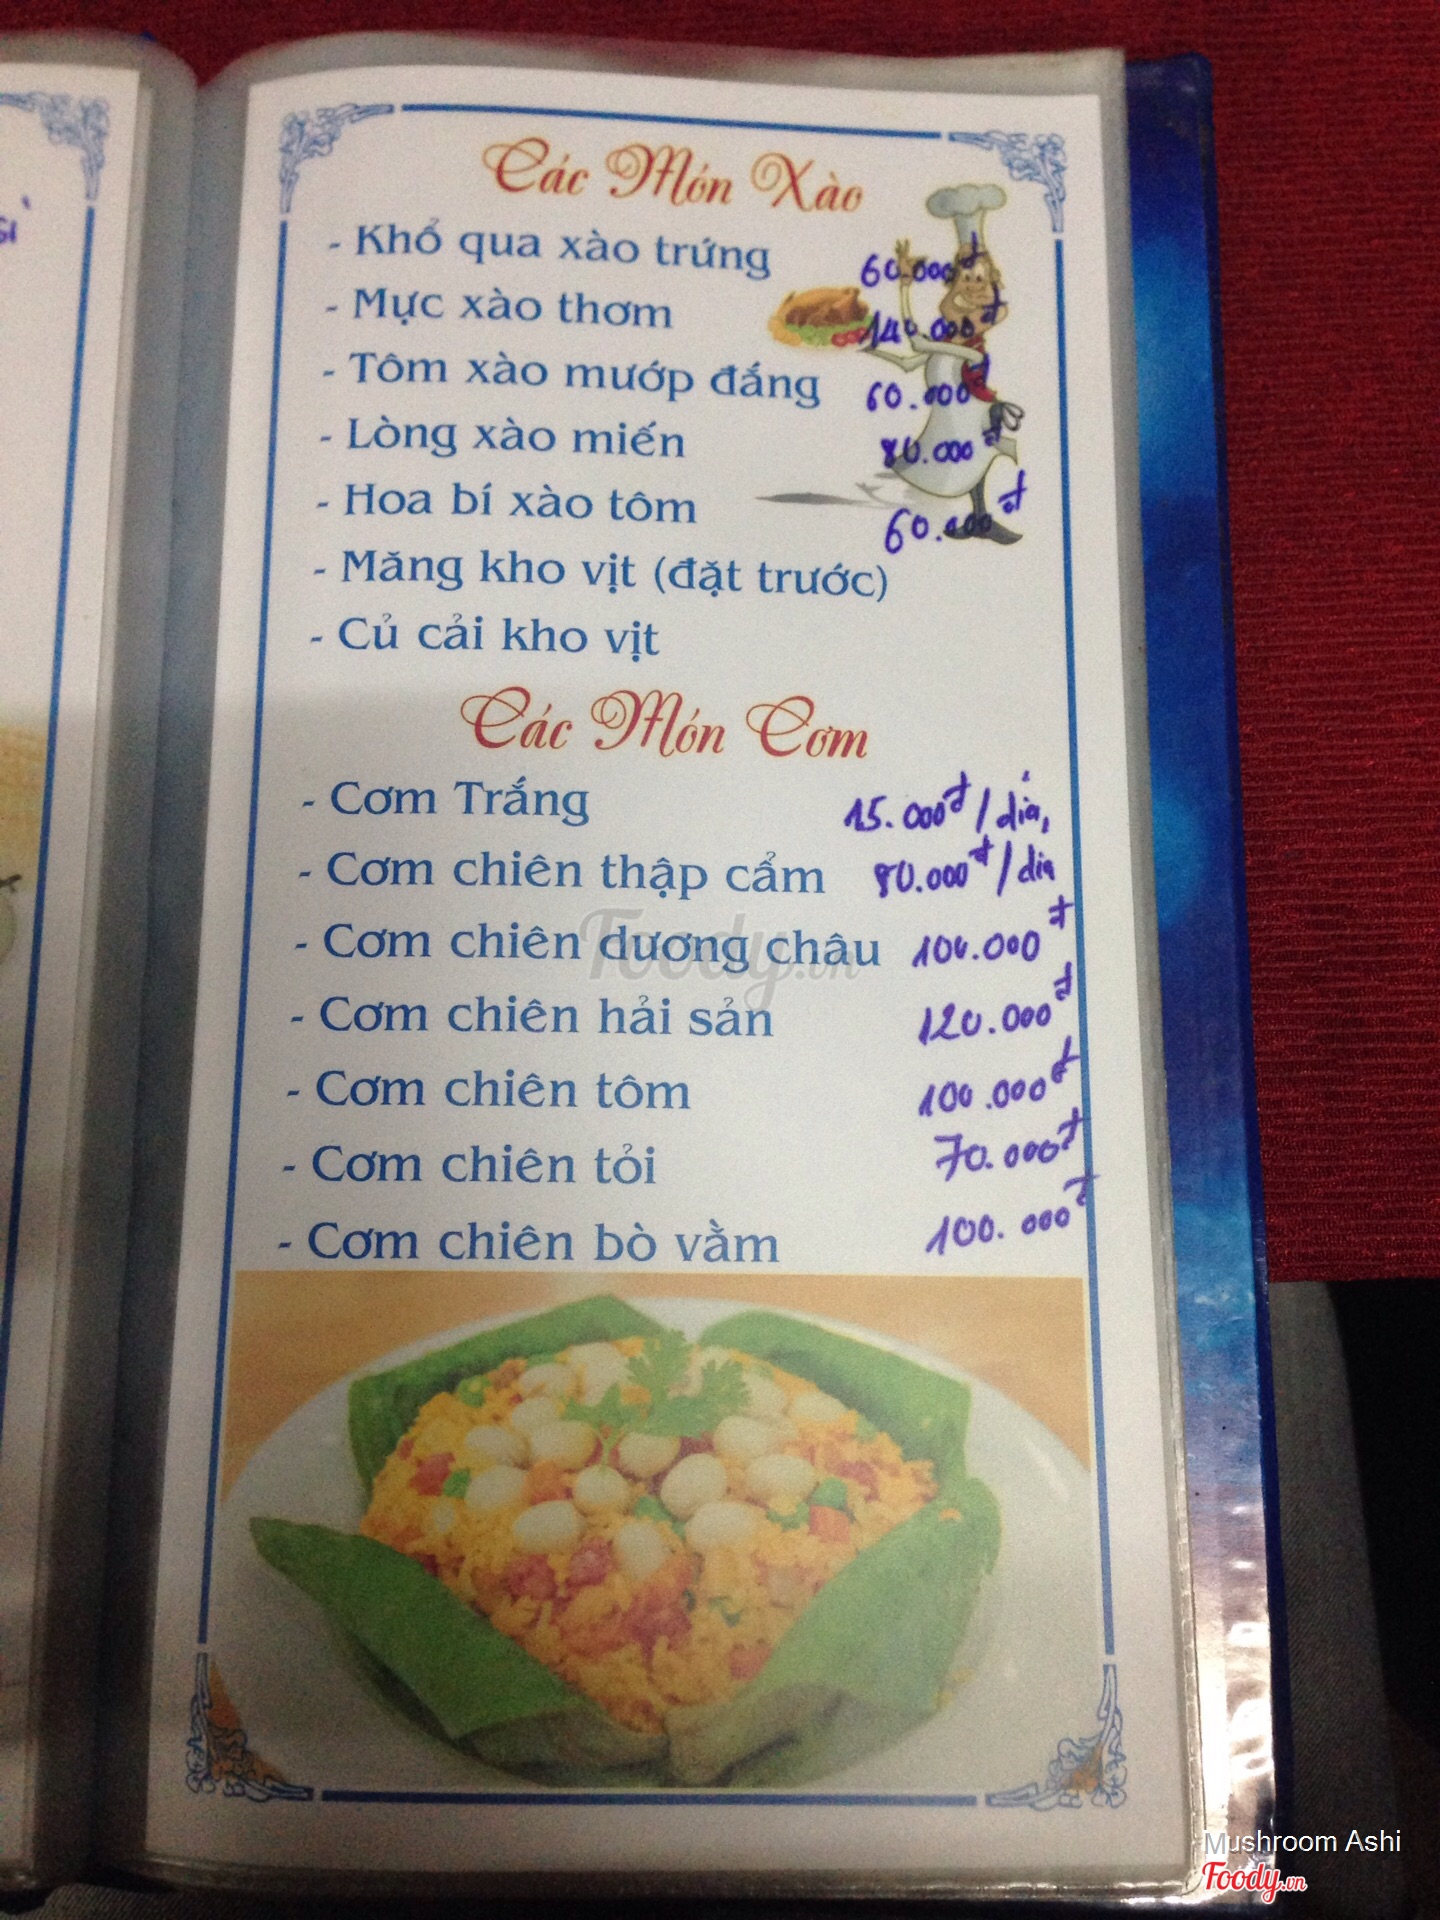 Các Món Xào
- Khổ qua xào trứng 60.000đ
- Mực xào thơm 140.000đ
- Tôm xào mướp đắng 60.000đ
- Lòng xào miến 80.000đ
- Hoa bí xào tôm 60.000đ
- Măng kho vịt (đặt trước)
- Củ cải kho vịt
Các Món Cơm
- Cơm Trắng 15.000đ/dĩa,
- Cơm chiên thập cẩm 80.000đ/dĩa
- Cơm chiên dương châu 100.000đ
- Cơm chiên hải sản 120.000đ
- Cơm chiên tôm 100.000đ
- Cơm chiên tỏi 70.000đ
- Cơm chiên bò vằm 100.000đ
Foody.vn
Mushroom Ashi
Foody.vn